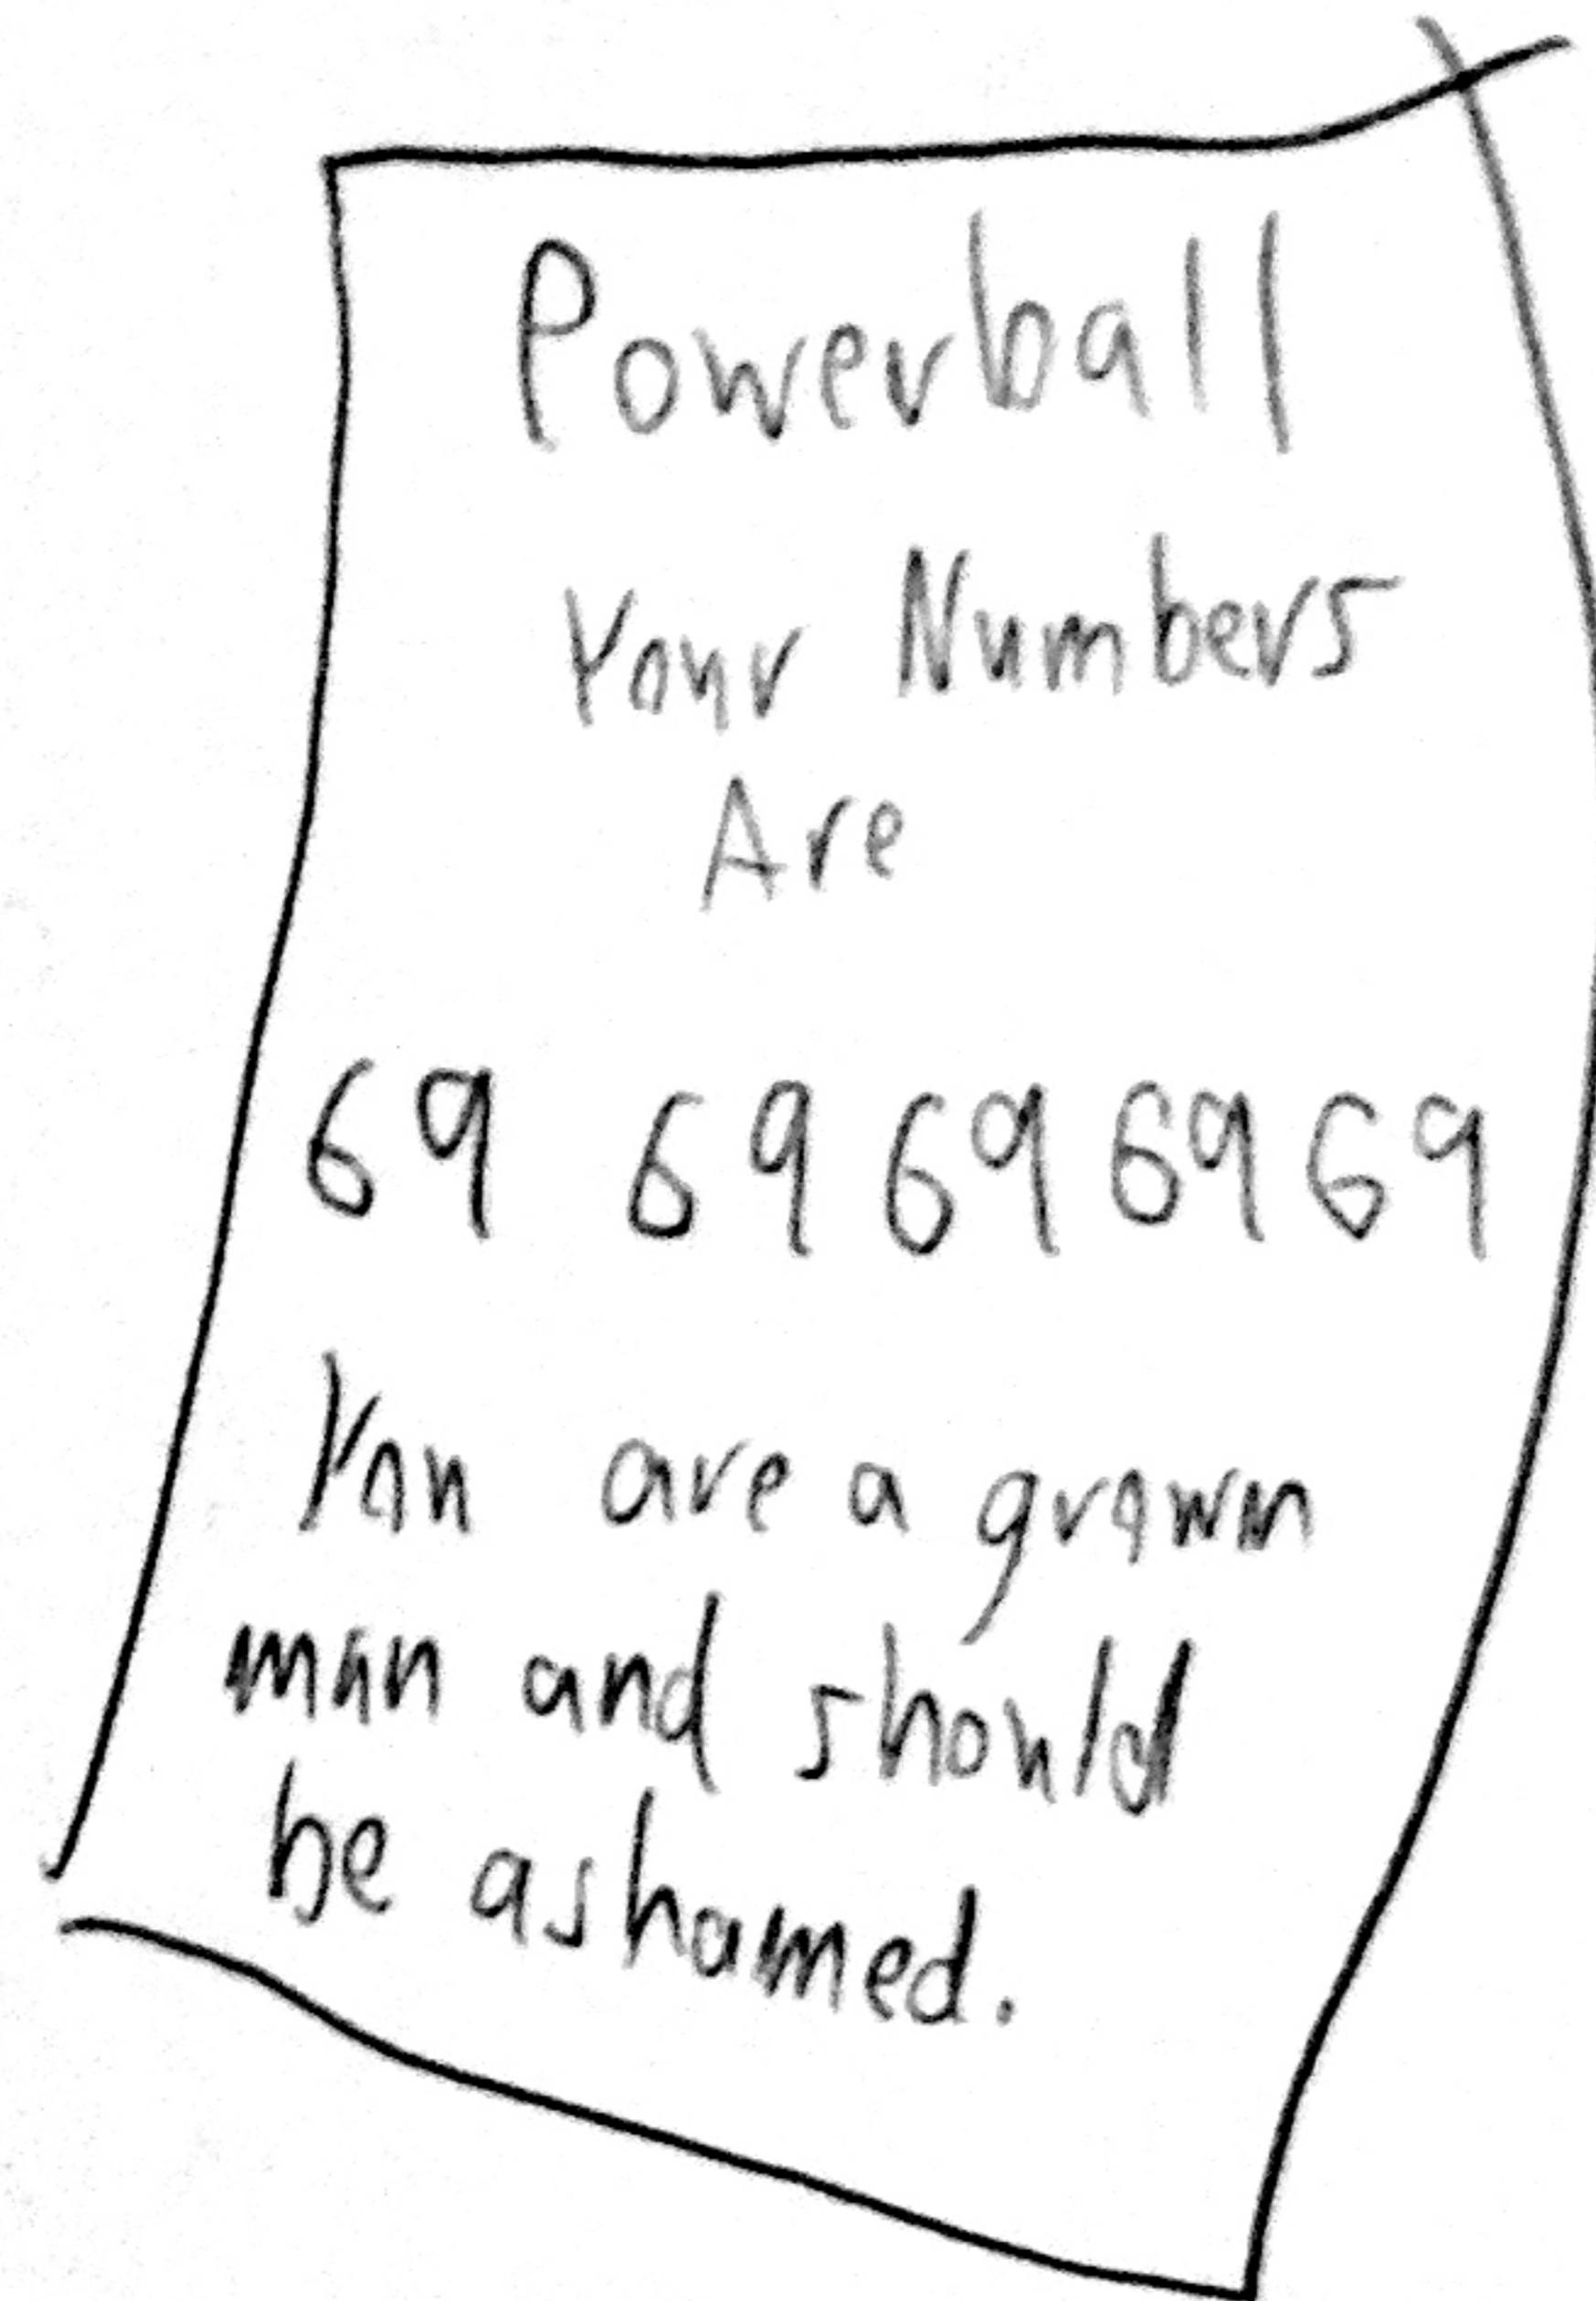 Powerball
Your Numbers
Are
69 69 69 69 69
You are a grown
man and should
be ashamed.